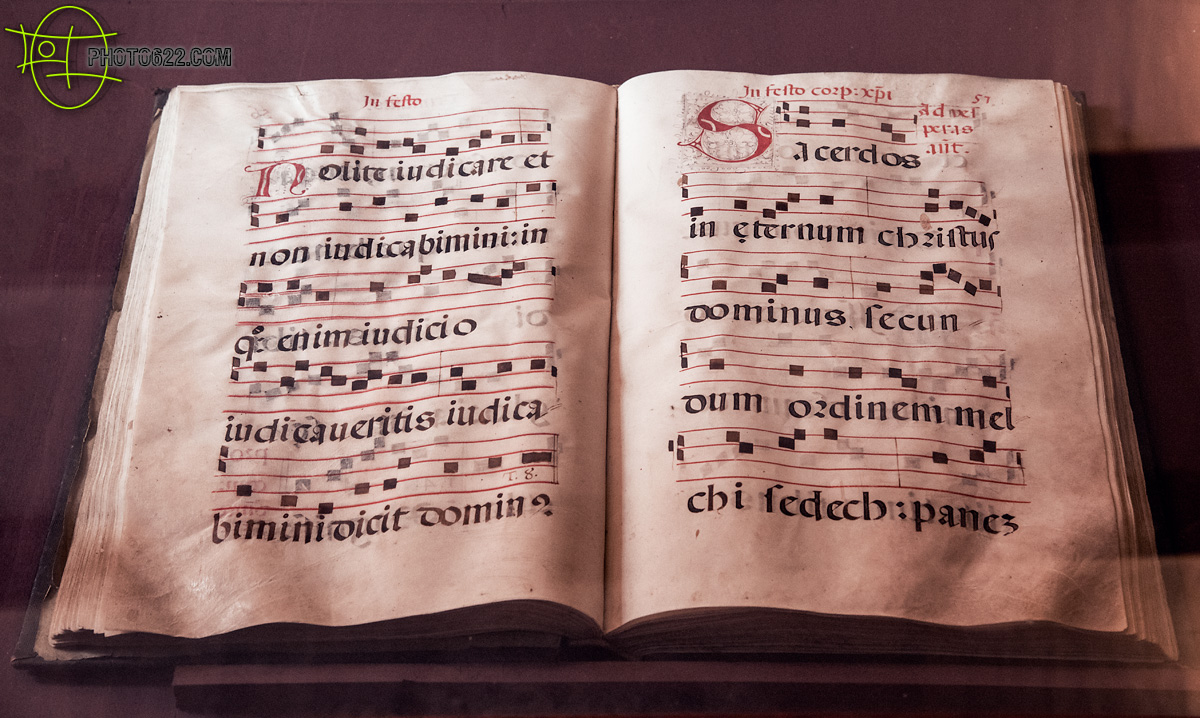 PHOTO622.COM
In festo
Nolite iudicare et
non iudicabimini: in
q° enim iudicio
iudicaveritis iudica
bimini dicit domin⁹
T. 8.
In festo corp: xp̄i
57
Ad ves
peras
añt.
Sacerdos
in ęternum christus
dominus secun
dum ordinem mel
chi sedech: panez